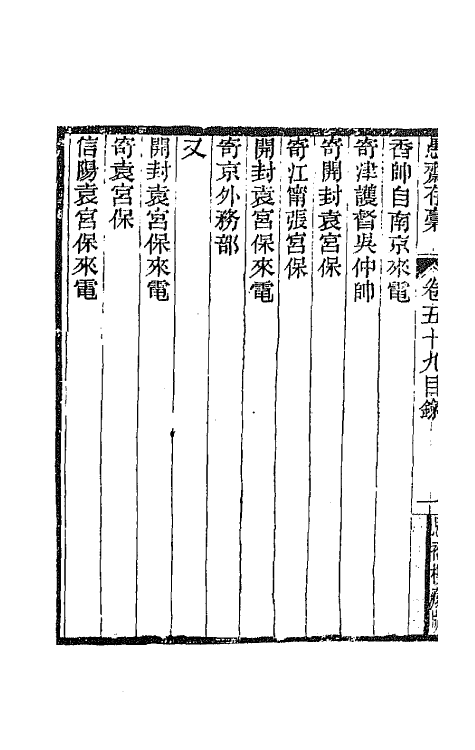 愚齋存稾
卷五十九目錄
香帥自南京來電
寄津護督吳仲帥
寄開封袁宮保
寄江甯張宮保
開封袁宮保來電
寄京外務部
又
開封袁宮保來電
寄袁宮保
信陽袁宮保來電